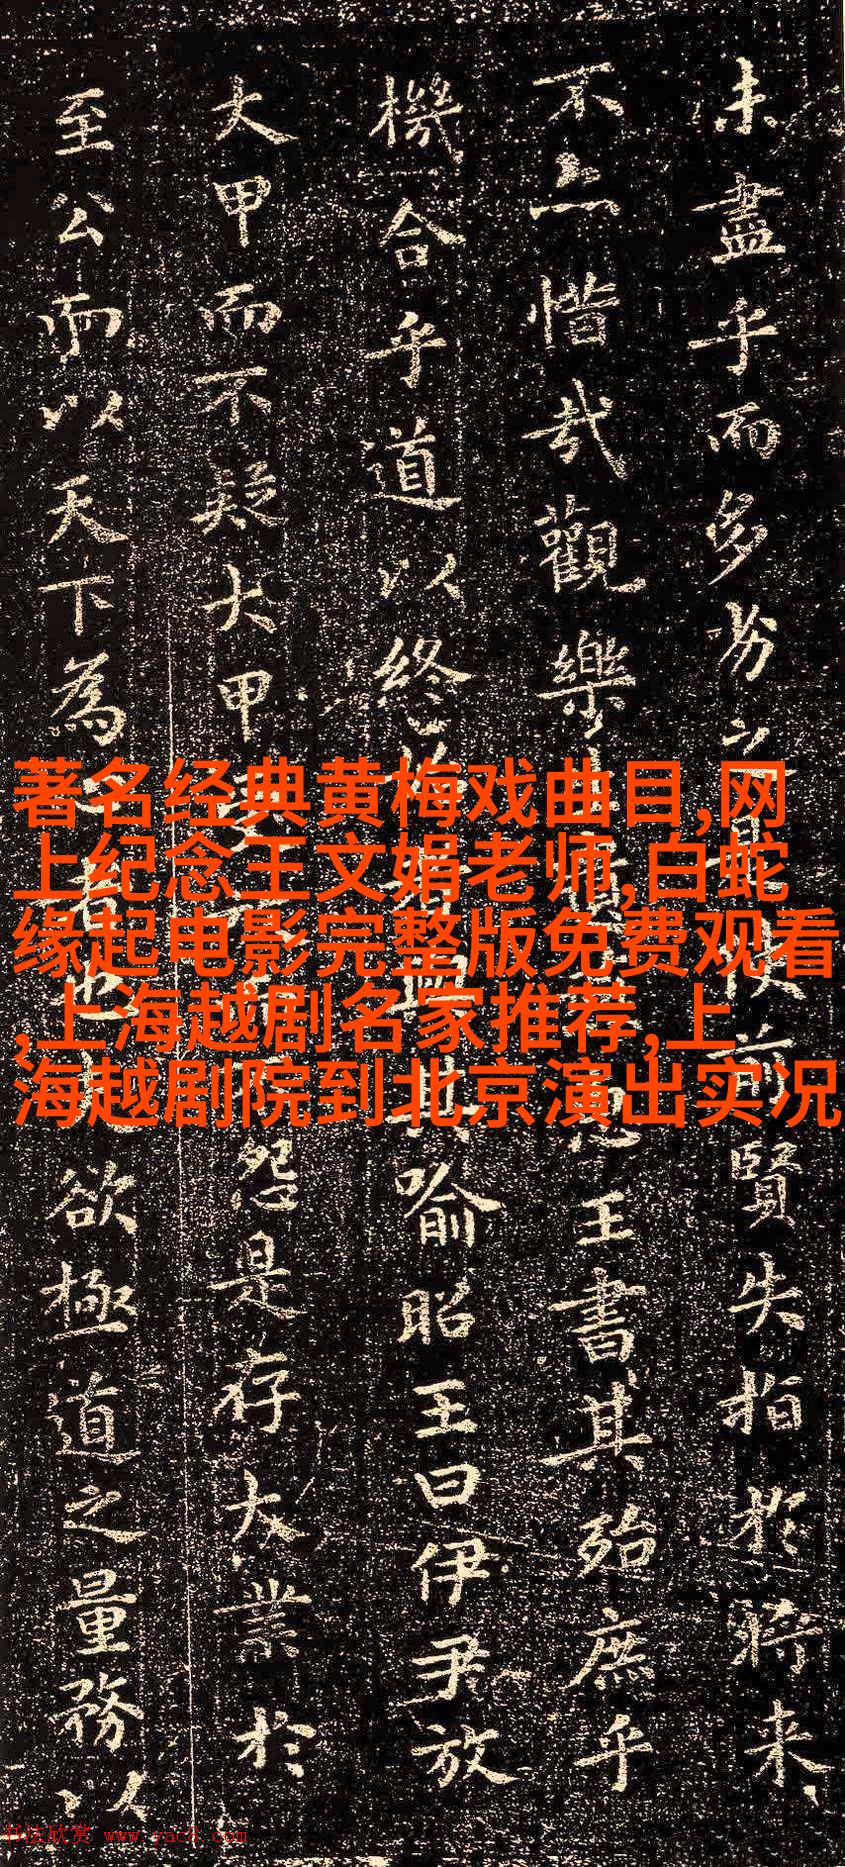 未盡乎而多劣之 前賢失指於將来
不亦惜哉觀樂 王書其殆庶乎
機合乎道以終 其喻昭王曰伊尹放
大甲而不疑大甲 怨是存大業於
至公而以天下為 欲極道之量務以
著名经典黄梅戏曲目,网
上纪念王文娟老师,白蛇
缘起电影完整版免费观看
,上海越剧名家推荐,上
海越剧院到北京演出实况
书法欣赏 www.yac8.com